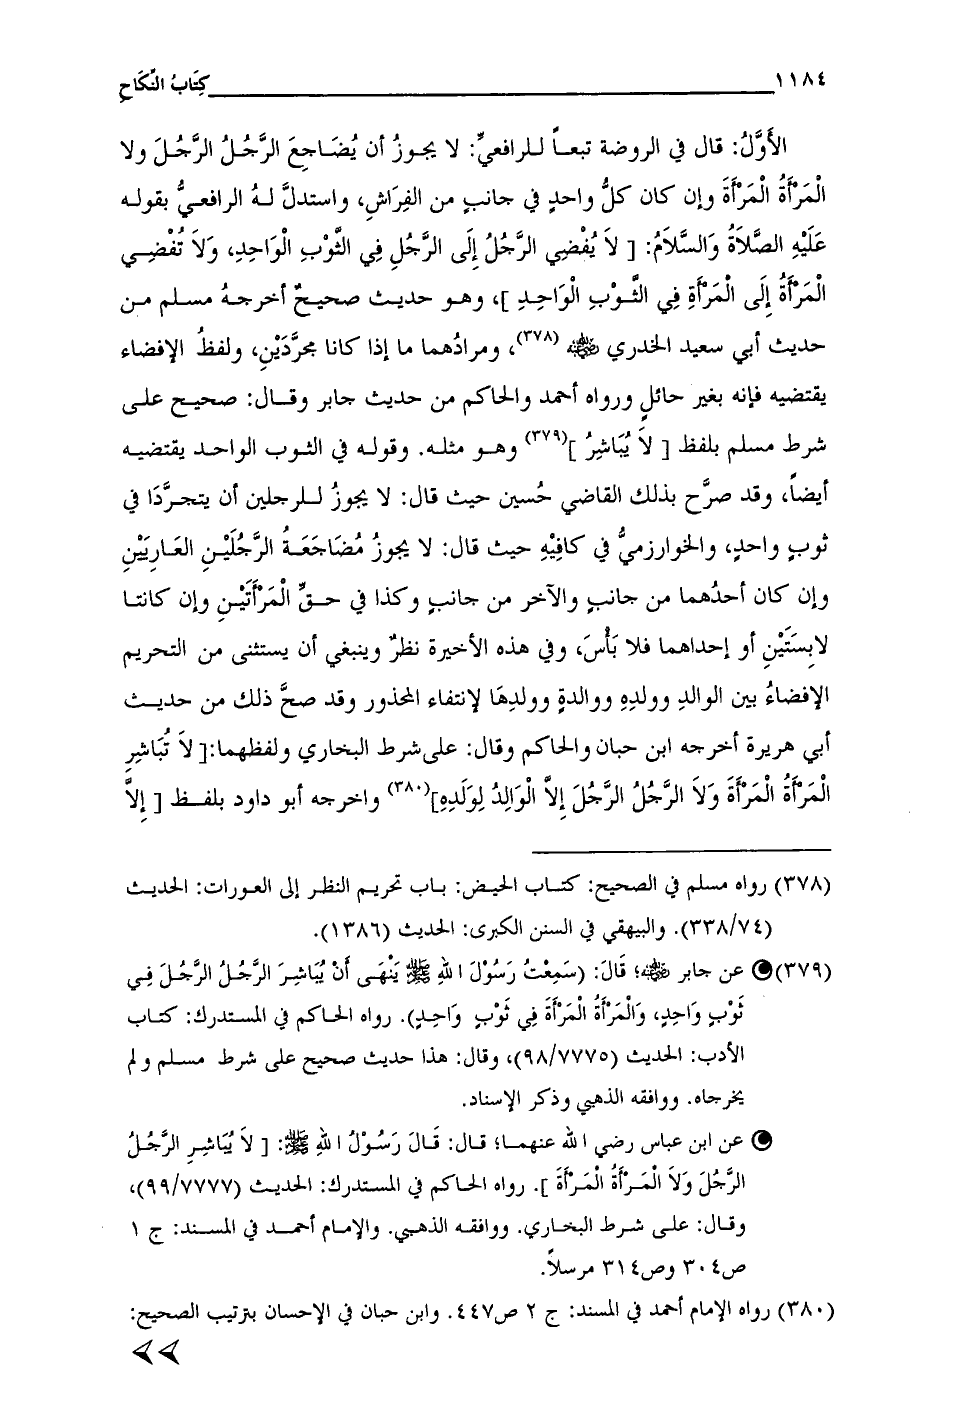 ١١٨٤ كِتَابُ النِّكَاحِ
الأَوَّلُ: قال في الروضة تبعاً للرافعيِّ: لا يجوزُ أن يُضَاجِعَ الرَّجُلُ الرَّجُلَ ولا
الْمَرْأَةُ الْمَرْأَةَ وإن كان كلُّ واحدٍ في جانبٍ من الفِرَاشِ، واستدلَّ لهُ الرافعيُّ بقوله
عَلَيْهِ الصَّلاَةُ وَالسَّلاَمُ: [ لاَ يُفْضِي الرَّجُلُ إِلَى الرَّجُلِ فِي الثَّوْبِ الْوَاحِدِ، وَلاَ تُفْضِي
الْمَرْأَةُ إِلَى الْمَرْأَةِ فِي الثَّوْبِ الْوَاحِدِ ]، وهو حديث صحيحٌ أخرجهُ مسلم من
حديث أبي سعيد الخدري ﷺ (٣٧٨)، ومرادُهما ما إذا كانا مجرَّدَيْنِ، ولفظُ الإفضاء
يقتضيه فإنه بغير حائلٍ ورواه أحمد والحاكم من حديث جابر وقال: صحيح على
شرط مسلم بلفظ [ لاَ يُبَاشِرُ ](٣٧٩) وهو مثله. وقوله في الثوب الواحد يقتضيه
أيضاً، وقد صرَّح بذلك القاضي حُسين حيث قال: لا يجوزُ للرجلين أن يتجرَّدَا في
ثوبٍ واحدٍ، والخوارزميُّ في كافِيْهِ حيث قال: لا يجوزُ مُضَاجَعَةُ الرَّجُلَيْنِ العَارِيَيْنِ
وإن كان أحدُهما من جانبٍ والآخر من جانبٍ وكذا في حقِّ الْمَرْأَتَيْنِ وإن كانتا
لابِسَتَيْنِ أو إحداهما فلا بَأْسَ، وفي هذه الأخيرة نظرٌ وينبغي أن يستثنى من التحريم
الإفضاءُ بين الوالدِ وولدِهِ ووالدةٍ وولدِهَا لإنتفاء المحذور وقد صحَّ ذلك من حديث
أبي هريرة أخرجه ابن حبان والحاكم وقال: على شرط البخاري ولفظهما:[ لاَ تُبَاشِرِ
الْمَرْأَةُ الْمَرْأَةَ وَلاَ الرَّجُلُ الرَّجُلَ إِلاَّ الْوَالِدُ لِوَلَدِهِ](٣٨٠) واخرجه أبو داود بلفظ [ إِلاَّ
(٣٧٨) رواه مسلم في الصحيح: كتاب الحيض: باب تحريم النظر إلى العورات: الحديث
(٣٣٨/٧٤). والبيهقي في السنن الكبرى: الحديث (١٣٨٦).
(٣٧٩) عن جابر ﷺ؛ قَالَ: (سَمِعْتُ رَسُوْلَ اللهِ ﷺ يَنْهَى أَنْ يُبَاشِرَ الرَّجُلُ الرَّجُلَ فِي
ثَوْبٍ وَاحِدٍ، وَالْمَرْأَةُ الْمَرْأَةَ فِي ثَوْبٍ وَاحِدٍ). رواه الحاكم في المستدرك: كتاب
الأدب: الحديث (٩٨/٧٧٧٥)، وقال: هذا حديث صحيح على شرط مسلم ولم
يخرجاه. ووافقه الذهبي وذكر الإسناد.
عن ابن عباس رضي الله عنهما؛ قال: قَالَ رَسُوْلُ اللهِ ﷺ: [ لاَ يُبَاشِرِ الرَّجُلُ
الرَّجُلَ وَلاَ الْمَرْأَةُ الْمَرْأَةَ ]. رواه الحاكم في المستدرك: الحديث (٩٩/٧٧٧٧)،
وقال: على شرط البخاري. ووافقه الذهبي. والإمام أحمد في المسند: ج ١
ص٣٠٤ وص٣١٤ مرسلاً.
(٣٨٠) رواه الإمام أحمد في المسند: ج ٢ ص٤٤٧. وابن حبان في الإحسان بترتيب الصحيح: